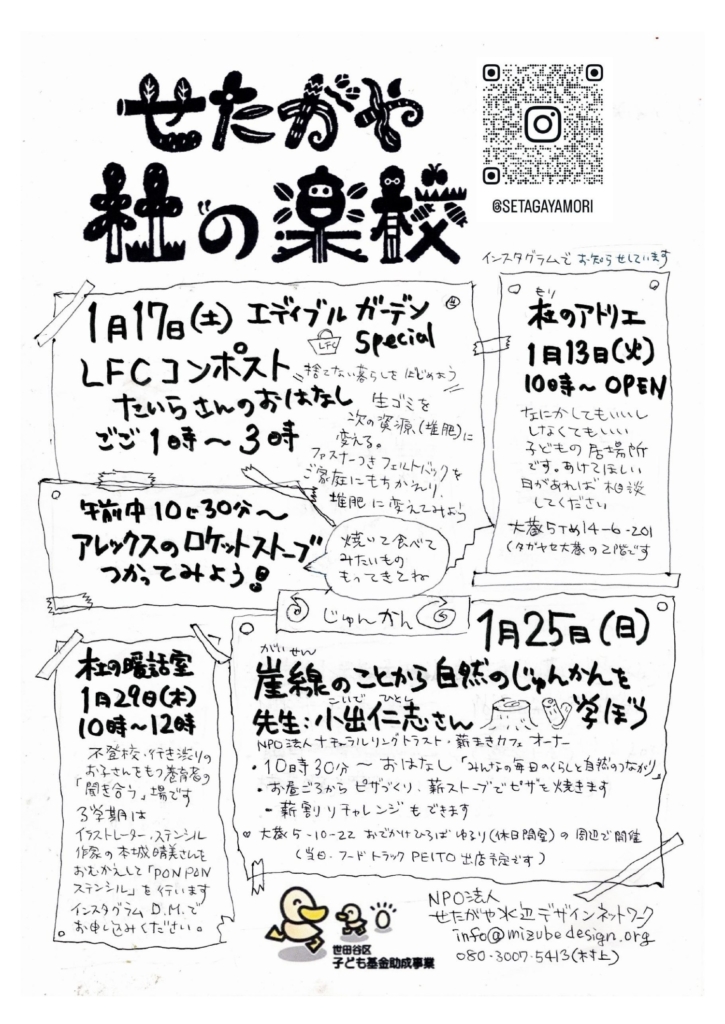 せたがや
杜の楽校
@SETAGAYAMORI
インスタグラムで お知らせしています
1月17日(土) エディブル ガーデン
Special
LFC
LFCコンポスト
捨てない暮らしをはじめよう
たいらさんのおはなし
ごご1時〜3時
生ゴミを
次の資源(堆肥)に
変える。
ファスナーつきフェルトバックを
ご家庭にもちかえり、
堆肥に変えてみよう
もり
杜のアトリエ
1月13日(火)
10時〜 OPEN
なにかしてもいいし
しなくてもいい
子どもの居場所
です。あけてほしい
日があれば相談
してください
大蔵5丁目14-6-201
(タガヤセ大蔵の2階です
午前中10じ30分〜
アレックスのロケットストーブ
つかってみよう!
焼いて食べて
みたいもの
もってきてね
じゅんかん
1月25日(日)
がいせん
崖線のことから自然のじゅんかんを
こいで ひとし
先生:小出仁志さん 学ぼう
NPO法人ナチュラルリングトラスト・薪まきカフェ オーナー
・10時30分〜 おはなし「みんなの毎日のくらしと自然のつながり」
・お昼ごろから ピザづくり、薪ストーブでピザを焼きます
- 薪割りチャレンジもできます
大蔵5-10-22 おでかけひろば ゆるり(休日開室)の周辺で開催
(当日・フードトラック PEITO 出店予定です)
杜の曜話室
1月29日(木)
10時〜12時
不登校・行き渋りの
お子さんをもつ養育者の
「聞き合う」場です
3学期は
イラストレーター・ステンシル
作家の本城晴美さんを
おむかえして「PONPON
ステンシル」を行います
インスタグラム D.M.で
お申し込みください。
世田谷区
子ども基金助成事業
NPO法人
せたがや水辺デザインネットワーク
info@mizubedesign.org
080-3007-5413(村上)